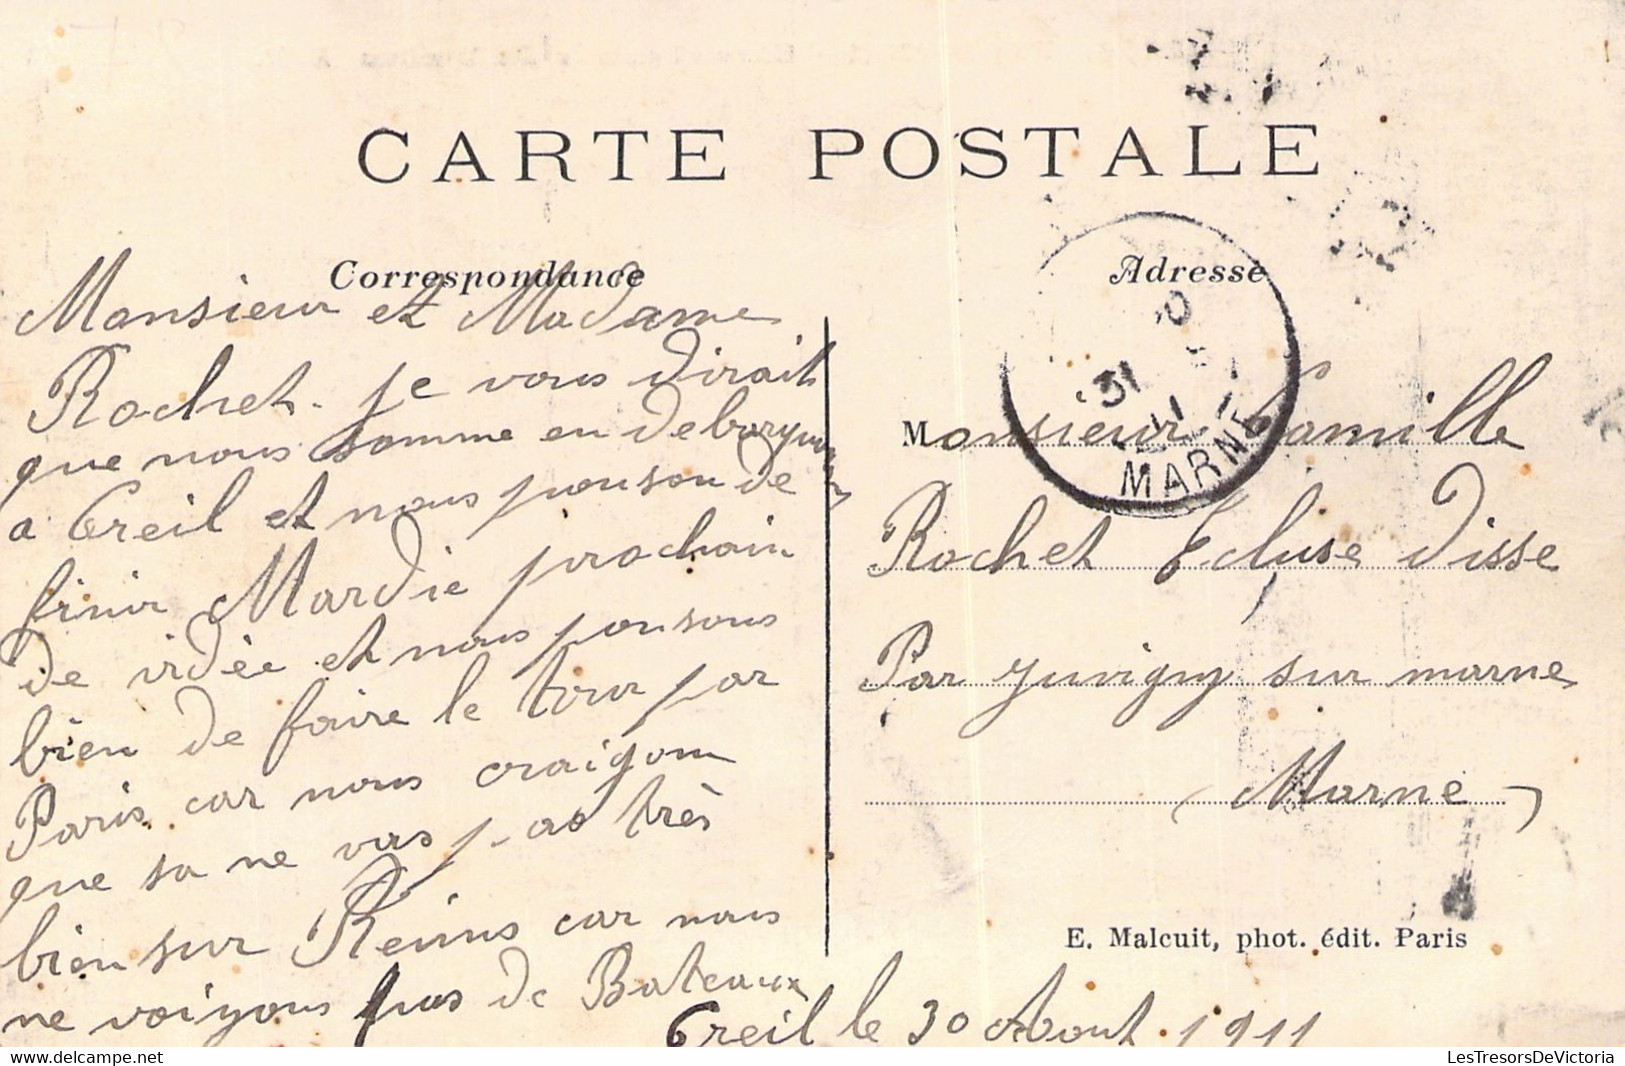 CARTE POSTALE
Correspondance
Monsieur et Madame
Rochet. je vous dirait
que nous somme en
a Creil et nous ponson de
finir Mardie prochain
de vidée et nous ponsons
bien de faire le tour par
Paris car nous craigons
que sa ne vas pas très
bien sur Reims car nous
ne voiyons pas de Bateaux
Creil le 30 Aout 1911
Adresse
31
MARNE
Monsieur Camille
Rochet Ecluse Disse
Par Juvigny sur marne
(Marne)
E. Malcuit, phot. édit. Paris
LesTresorsDeVictoria